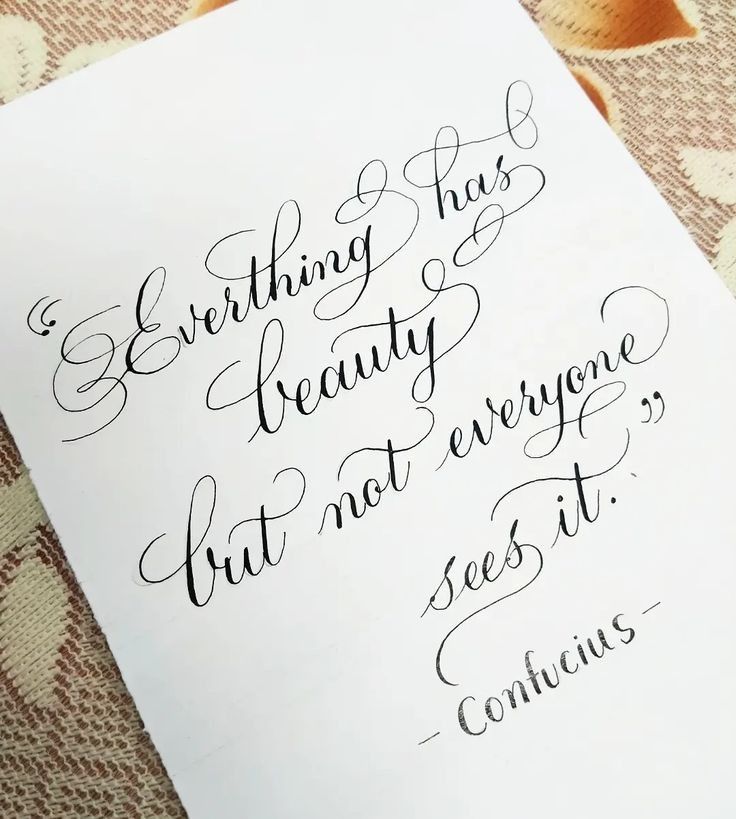 “Everthing has
beauty
but not everyone
sees it.”
- Confucius -